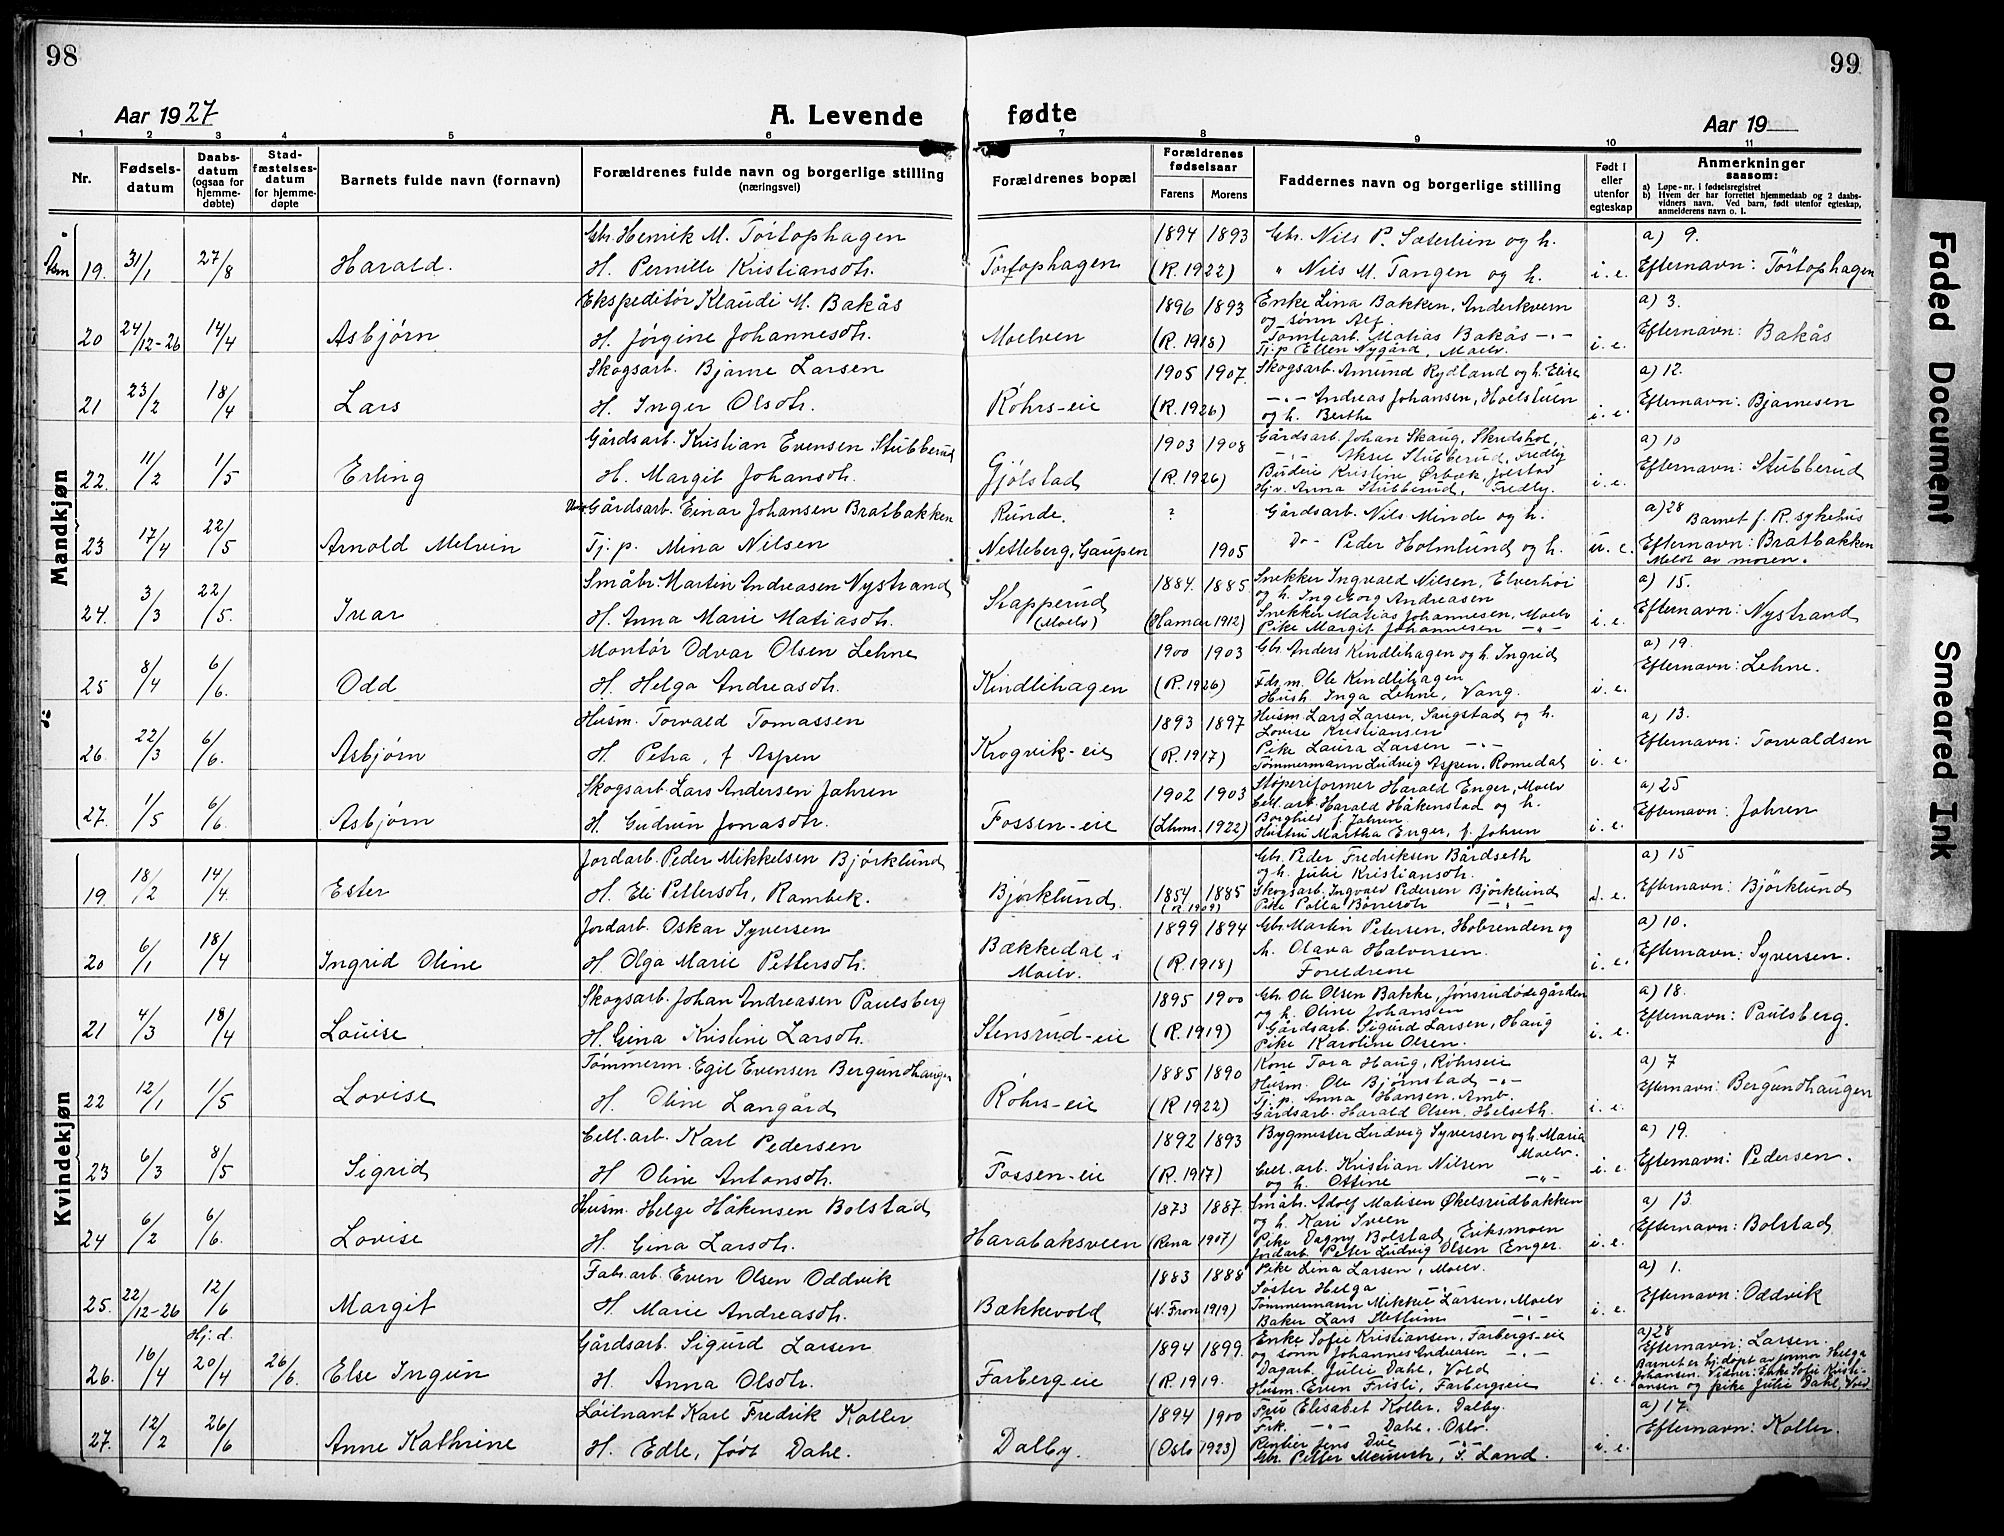 98
99
Aar 1927
A. Levende fødte
Aar 19
1 2 3 4 5 6 7 8 9 10 11
Nr.
Fødsels-
datum
Daabs-
datum
(ogsaa for
hjemme-
døbte)
Stad-
fæstelses-
datum
for hjemme-
døpte
Barnets fulde navn (fornavn)
Forældrenes fulde navn og borgerlige stilling
(næringsvei)
Forældrenes bopæl
Forældrenes
fødselsaar
Farens Morens
Faddernes navn og borgerlige stilling
Født i
eller
utenfor
egteskap
Anmerkninger
saasom:
a) Løpe-nr. i fødselsregistret
b) Hvem der har forrettet hjemmedaab og 2 daabs-
vidners navn. Ved barn, født utenfor egteskap,
anmelderens navn o. l.
Mandkjøn
Gbr. Henrik M. Törtophagen 1894 1893 Gbr. Nils P. Sæterlien og h. a) 9.
19. 31/1 27/8 Harald. H. Pernille Kristiansdtr. Törtophagen (R. 1922) " Nils M. Tangen og h. i. e. Efternavn: Törtophagen
Ekspeditør Klaudi M. Bakås 1896 1893 Enke Lina Bakken, Anderkvern a) 3.
og sønn Alf
20 24/12-26 14/4 Asbjørn H. Jørgine Johannesdtr. Moelven (R. 1918) Tömlearb. Matias Bakås -"- i. e. Efternavn: Bakås
Tj. p. Ellen Nygård, Moelv.
Skogsarb. Bjarne Larsen 1905 1907. Skogsarb. Amund Rydland og h. Elise a) 12.
21 23/2 18/4 Lars H. Inger Olsdtr. Röhrs-eie (R. 1926) -"- Andreas Johansen, Hoelstuen i. e. Efternavn: Bjarnesen
og h. Berthe
Gårdsarb. Kristian Evensen Stubberud 1903 1908 Gårdsarb. Johan Skaug, Skredshol, a) 10
-"- Aksel Stubberud, Fredly
22. 11/2 1/5 Erling H. Margit Johansdtr. Gjölstad (R. 1926) Budeie Kristine Ørbæk, Jølstad i. e. Efternavn: Stubberud
Hj.v. Anna Stubberud, Fredly.
Gårdsarb. Einar Johansen Bratbakken Runde. ? Gårdsarb. Nils Minde og h. a) 28 Barnet f. R. sykehus
23 17/4 22/5 Arnold Melvin Tj. p. Mina Nilsen Netteberg, Gaupen 1905 Do - Peder Holmlund og h. u. e. Efternavn: Bratbakken
Meldt av moren.
Småbr. Martin Andreasen Nystrand 1884. 1885. Snekker Ingvald Nilsen, Elverhöi a) 15.
og h. Ingeborg Andreasen
24. 3/3 22/5. Ivar H. Anna Marie Matiasdtr. Stapperud (Moelv) (Hamar 1912) Snekker Matias Johannesen, Moelv i. e. Efternavn: Nystrand
Pike Margit Johannesen -"-
Montør Odvar Olsen Lehne 1900 1903 Gbr. Anders Kindlihagen og h. Ingrid a) 19.
25 8/4 6/6. Odd H. Helga Andreasdtr. Kindlihagen (R. 1926) Fdr.m. Ole Kindlihagen i. e. Efternavn: Lehne.
Hush. Inga Lehne, Vang.
Husm. Torvald Tomassen 1893 1897 Husm. Lars Larsen, Saugstad og h. a) 13.
Lovise Kristiansen
26 22/3 6/6. Asbjørn H. Petra, f. Aspen Krogvik-eie (R. 1917) Pike Laura Larsen -"- i. e. Efternavn: Torvaldsen
Tømmermann Ludvig Aspen, Romedal
Skogsarb. Lars Andersen Jahren 1902 1903 Støperiformer Harald Enger, Moelv a) 25
Cell.arb. Harald Håkenstad og h.
27. 1/5 6/6. Asbjørn H. Gudrun Jonasdtr. Fossen-eie (Lhmr. 1922) Borghild f. Jahren i. e. Efternavn: Jahren
Hustru Martha Enger, f. Jahren
Kvindekjøn
Jordarb. Peder Mikkelsen Björklund Gbr. Peder Fredriksen Bårdseth a) 15
og h. Julie Kristiansdtr.
19. 18/2 14/4. Ester H. Eli Pettersdtr, Rambek. Björklund. 1854 1885 Skogsarb. Ingvald Pedersen Björklund i. e. Efternavn: Björklund
Jordarb. Oskar Syversen 1899 1894 Gbr. Martin Petersen, Hobrenden og a) 10.
20 6/1 18/4 Ingrid Oline H. Olga Marie Pettersdtr. Bækkedal i Moelv. (R. 1918) h. Olava Halvorsen. i. e. Efternavn: Syversen.
Foreldrene
Skogsarb. Johan Andreasen Paulsberg 1895 1900 Gbr. Ole Olsen Bakke, Jønsrudødegården a) 18.
og h. Oline Johansen
21 4/3 18/4 Louise H. Gina Kristine Larsdtr. Stensrud-eie (R. 1919) Gårdsarb. Sigurd Larsen, Haug i. e. Efternavn: Paulsberg.
Pike Karoline Olsen.
Tømmerm. Egil Evensen Bergundhaugen 1885 1890 Kone Tora Haug, Röhrseie a) 7
Husm. Ole Bjørnstad -"-
22 12/1 1/5 Lovise H. Oline Langård Röhrs-eie (R 1922) Tj. p. Anna Hansen, Amb. i. e. Efternavn: Bergundhaugen
Gårdsarb. Harald Olsen, Helseth.
Cell.arb. Karl Pedersen 1892 1893 Bygmester Ludvig Syversen og h. Maria Moelv. a) 19.
23 6/3 8/5 Sigrid H. Oline Antonsdtr. Fossen-eie (R. 1917) Cell.arb. Kristian Nilsen i. e. Efternavn: Pedersen.
og h. Ottine -"-
Husm. Helge Håkensen Bolstad 1873 1887. Småbr. Adolf Matisen Økelsrudbakken a) 13.
og h. Kari Sveen
24 6/2 6/6. Lovise H. Gina Larsdtr. Harabaksveen (Rena 1907) Pike Dagny Bolstad, Eriksmoen i. e. Efternavn: Bolstad
Jordarb. Peter Ludvig Olsen Enger.
Fab.arb. Even Olsen Oddvik 1883 1888 Pike Lina Larsen, Moelv. a) 1.
Søster Helga -"-
25. 22/12-26 12/6 Margit H. Marie Andreasdtr. Bækkevold (N. Fron 1919) Tømmermann Mikkel Larsen, Moelv i. e. Efternavn: Oddvik
Baker Lars Slettum -"-
Hj. d. Gårdsarb. Sigurd Larsen 1894 1899. Enke Sofie Kristiansen, Farbergs-eie a) 28 Efternavn: Larsen.
og sønn Johannes Andreasen -"- Barnet er hj.døpt av jormor Helga
26. 16/4 20/4 26/6. Else Ingun H. Anna Olsdtr. Farberg-eie (R. 1919. Dagarb. Julie Dahl, Vold i. e. Johansen. Vidner: Enke Sofie Kristi-
Husm. Even Fristi, Farbergseie ansen og pike Julie Dahl, Vold
Løitnant Karl Fredrik Koller 1894 1900 Fru Elisabet Koller, Dalby. a) 17.
Frk. -"- Dahl, Oslo.
27. 12/2 26/6 Anne Kathrine H. Edle, född Dahl. Dalby. (Oslo 1923) Rentier Jens Due -"- i. e. Efternavn: Koller.
Gbr. Petter Meinich, S. Land.
Faded Document
Smeared Ink